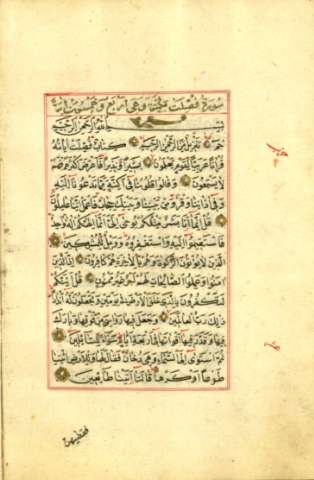 سورة فصلت مكية وهي اربع وخمسون اية
بسم الله الرحمن الرحيم
حم تنزيل من الرحمن الرحيم كتاب فصلت اياته
قرانا عربيا لقوم يعلمون بشيرا ونذيرا فاعرض اكثرهم فهم
لا يسمعون وقالوا قلوبنا في اكنة مما تدعونا اليه
وفي اذاننا وقر ومن بيننا وبينك حجاب فاعمل اننا عاملون
قل انما انا بشر مثلكم يوحى الي انما الهكم اله واحد
فاستقيموا اليه واستغفروه وويل للمشركين
الذين لا يؤتون الزكوة وهم بالاخرة هم كافرون ان الذين
امنوا وعملوا الصالحات لهم اجر غير ممنون قل ائنكم
لتكفرون بالذي خلق الارض في يومين وتجعلون له اندادا
ذلك رب العالمين وجعل فيها رواسي من فوقها وبارك
فيها وقدر فيها اقواتها في اربعة ايام سواء للسائلين
ثم استوى الى السماء وهي دخان فقال لها وللارض ائتيا
طوعا او كرها قالتا اتينا طائعين
فقضيهن